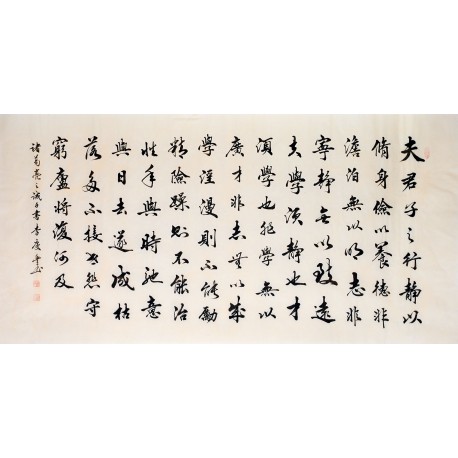 夫君子之行靜以
脩身儉以養德非
澹泊無以明志非
寧靜無以致遠
夫學須靜也才
須學也非學無以
廣才非志無以成
學淫漫則不能勵
精險躁則不能治
性年與時馳意
與日去遂成枯
落多不接世悲守
窮廬將復何及
諸葛亮之誡子書李